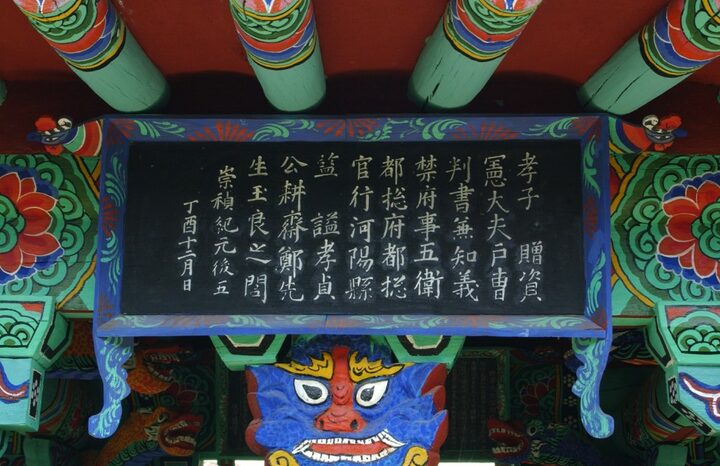 孝子 贈資
憲大夫戶曺
判書兼知義
禁府事五衛
都総府都総
官行河陽縣
監 謚孝貞
公耕齋鄭先
生玉良之閭
崇禎紀元後五
丁酉十二月日